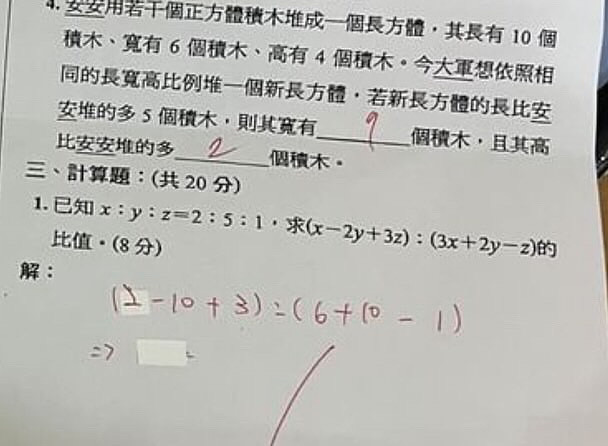 4. 安安用若干個正方體積木堆成一個長方體，其長有 10 個
積木、寬有 6 個積木、高有 4 個積木。今大軍想依照相
同的長寬高比例堆一個新長方體，若新長方體的長比安
安堆的多 5 個積木，則其寬有 9 個積木，且其高
比安安堆的多 2 個積木。
三、計算題：(共 20 分)
1. 已知 x：y：z＝2：5：1，求(x－2y＋3z)：(3x＋2y－z)的
比值。(8 分)
解：
(2-10+3):(6+10-1)
=>